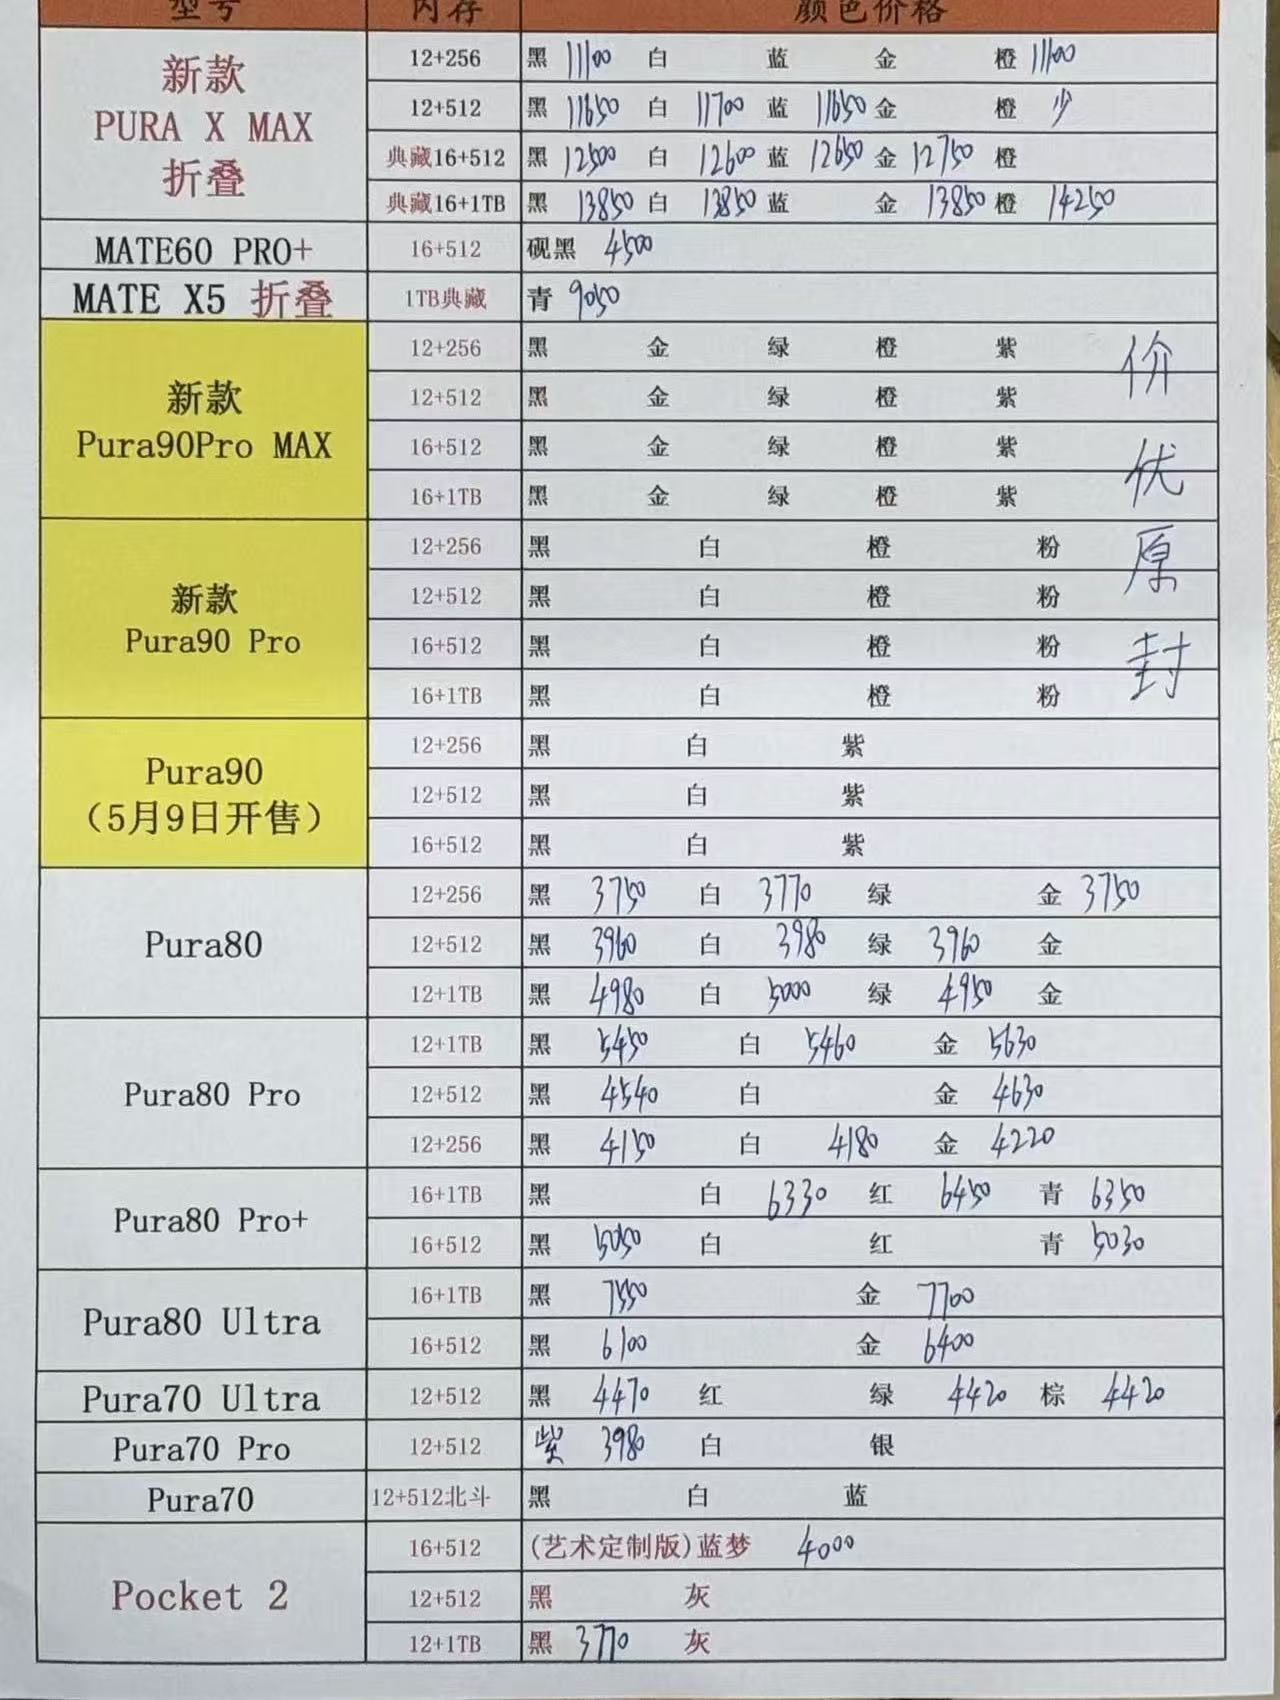 型号 内存 颜色价格
新款 PURA X MAX 折叠
12+256 黑 11100 白 蓝 金 橙 11100
12+512 黑 11650 白 11700 蓝 11650 金 橙 少
典藏16+512 黑 12500 白 12600 蓝 12650 金 12750 橙
典藏16+1TB 黑 13850 白 13850 蓝 金 13850 橙 14250
MATE60 PRO+ 16+512 砚黑 4500
MATE X5 折叠 1TB典藏 青 9050
新款 Pura90Pro MAX
12+256 黑 金 绿 橙 紫
12+512 黑 金 绿 橙 紫
16+512 黑 金 绿 橙 紫
16+1TB 黑 金 绿 橙 紫
价优原封
新款 Pura90 Pro
12+256 黑 白 橙 粉
12+512 黑 白 橙 粉
16+512 黑 白 橙 粉
16+1TB 黑 白 橙 粉
Pura90
（5月9日开售）
12+256 黑 白 紫
12+512 黑 白 紫
16+512 黑 白 紫
Pura80
12+256 黑 3750 白 3770 绿 金 3750
12+512 黑 3960 白 3980 绿 3960 金
12+1TB 黑 4980 白 5000 绿 4950 金
Pura80 Pro
12+1TB 黑 5450 白 5460 金 5630
12+512 黑 4540 白 金 4630
12+256 黑 4150 白 4180 金 4220
Pura80 Pro+
16+1TB 黑 白 6330 红 6450 青 6350
16+512 黑 5050 白 红 青 5030
Pura80 Ultra
16+1TB 黑 7550 金 7700
16+512 黑 6100 金 6400
Pura70 Ultra 12+512 黑 4470 红 绿 4420 棕 4420
Pura70 Pro 12+512 紫 3980 白 银
Pura70 12+512北斗 黑 白 蓝
Pocket 2
16+512 (艺术定制版)蓝梦 4000
12+512 黑 灰
12+1TB 黑 3770 灰